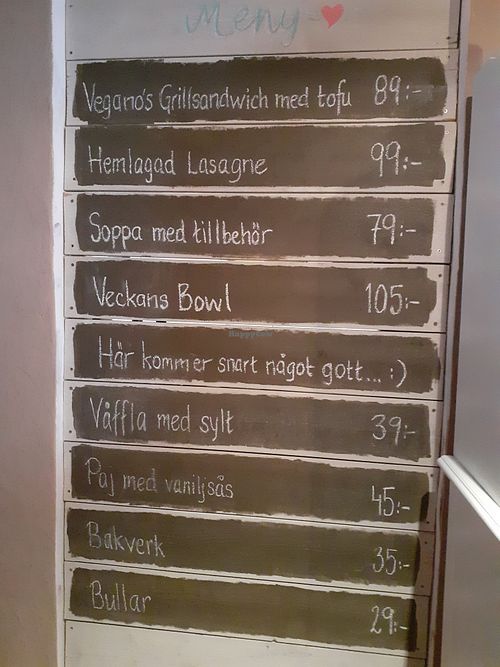 Meny
Vegano's Grillsandwich med tofu 89:-
Hemlagad Lasagne 99:-
Soppa med tillbehör 79:-
Veckans Bowl 105:-
Här kommer snart något gott... :)
Våffla med sylt 39:-
Paj med vaniljsås 45:-
Bakverk 35:-
Bullar 29:-